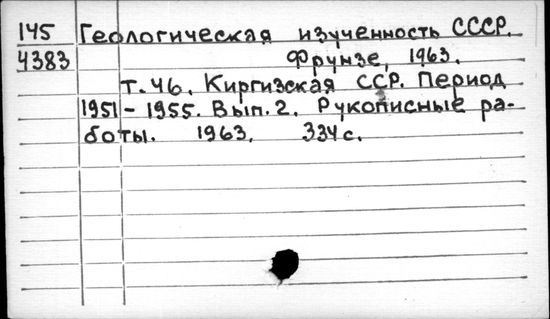 145 Геологическая изученность СССР.
4383 Фрунзе, 1963.
т. 46. Киргизская ССР. Период
1951 - 1955. Вып. 2. Рукописные ра-
боты. 1963. 334 с.